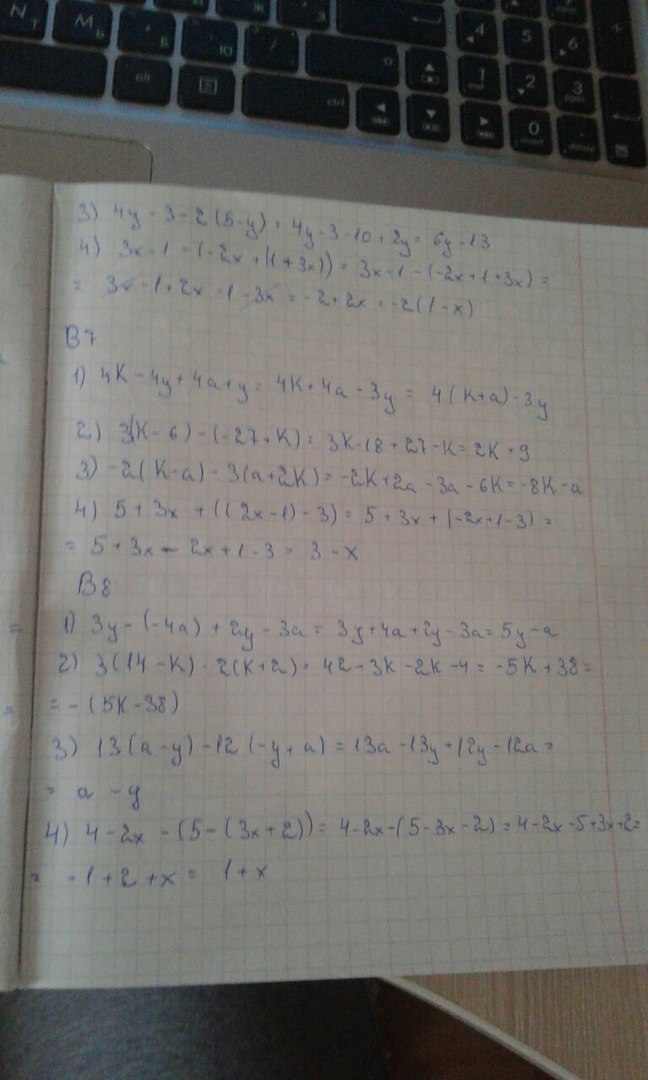 3) 4y - 3 - 2(5-y) = 4y - 3 - 10 + 2y = 6y - 13
4) 3x - 1 - (-2x + (1 + 3x)) = 3x - 1 - (-2x + 1 + 3x) =
= 3x - 1 + 2x - 1 - 3x = -2 + 2x = -2(1 - x)
В7
1) 4K - 4y + 4a + y = 4K + 4a - 3y = 4(K+a) - 3y
2) 3(K - 6) - (-27 + K) = 3K - 18 + 27 - K = 2K + 9
3) -2(K - a) - 3(a + 2K) = -2K + 2a - 3a - 6K = -8K - a
4) 5 + 3x + ((2x - 1) - 3) = 5 + 3x + (-2x + 1 - 3) =
= 5 + 3x - 2x + 1 - 3 = 3 - x
В8
1) 3y - (-4a) + 2y - 3a = 3y + 4a + 2y - 3a = 5y - a
2) 3(14 - K) - 2(K + 2) = 42 - 3K - 2K - 4 = -5K + 38 =
= - (5K - 38)
3) 13(a - y) - 12(-y + a) = 13a - 13y + 12y - 12a =
= a - y
4) 4 - 2x - (5 - (3x + 2)) = 4 - 2x - (5 - 3x - 2) = 4 - 2x - 5 + 3x + 2 =
= -1 + 2 + x = 1 + x
N
M
Ь
Б
Ю
alt
ctrl
4
5
6
1
2
3
0